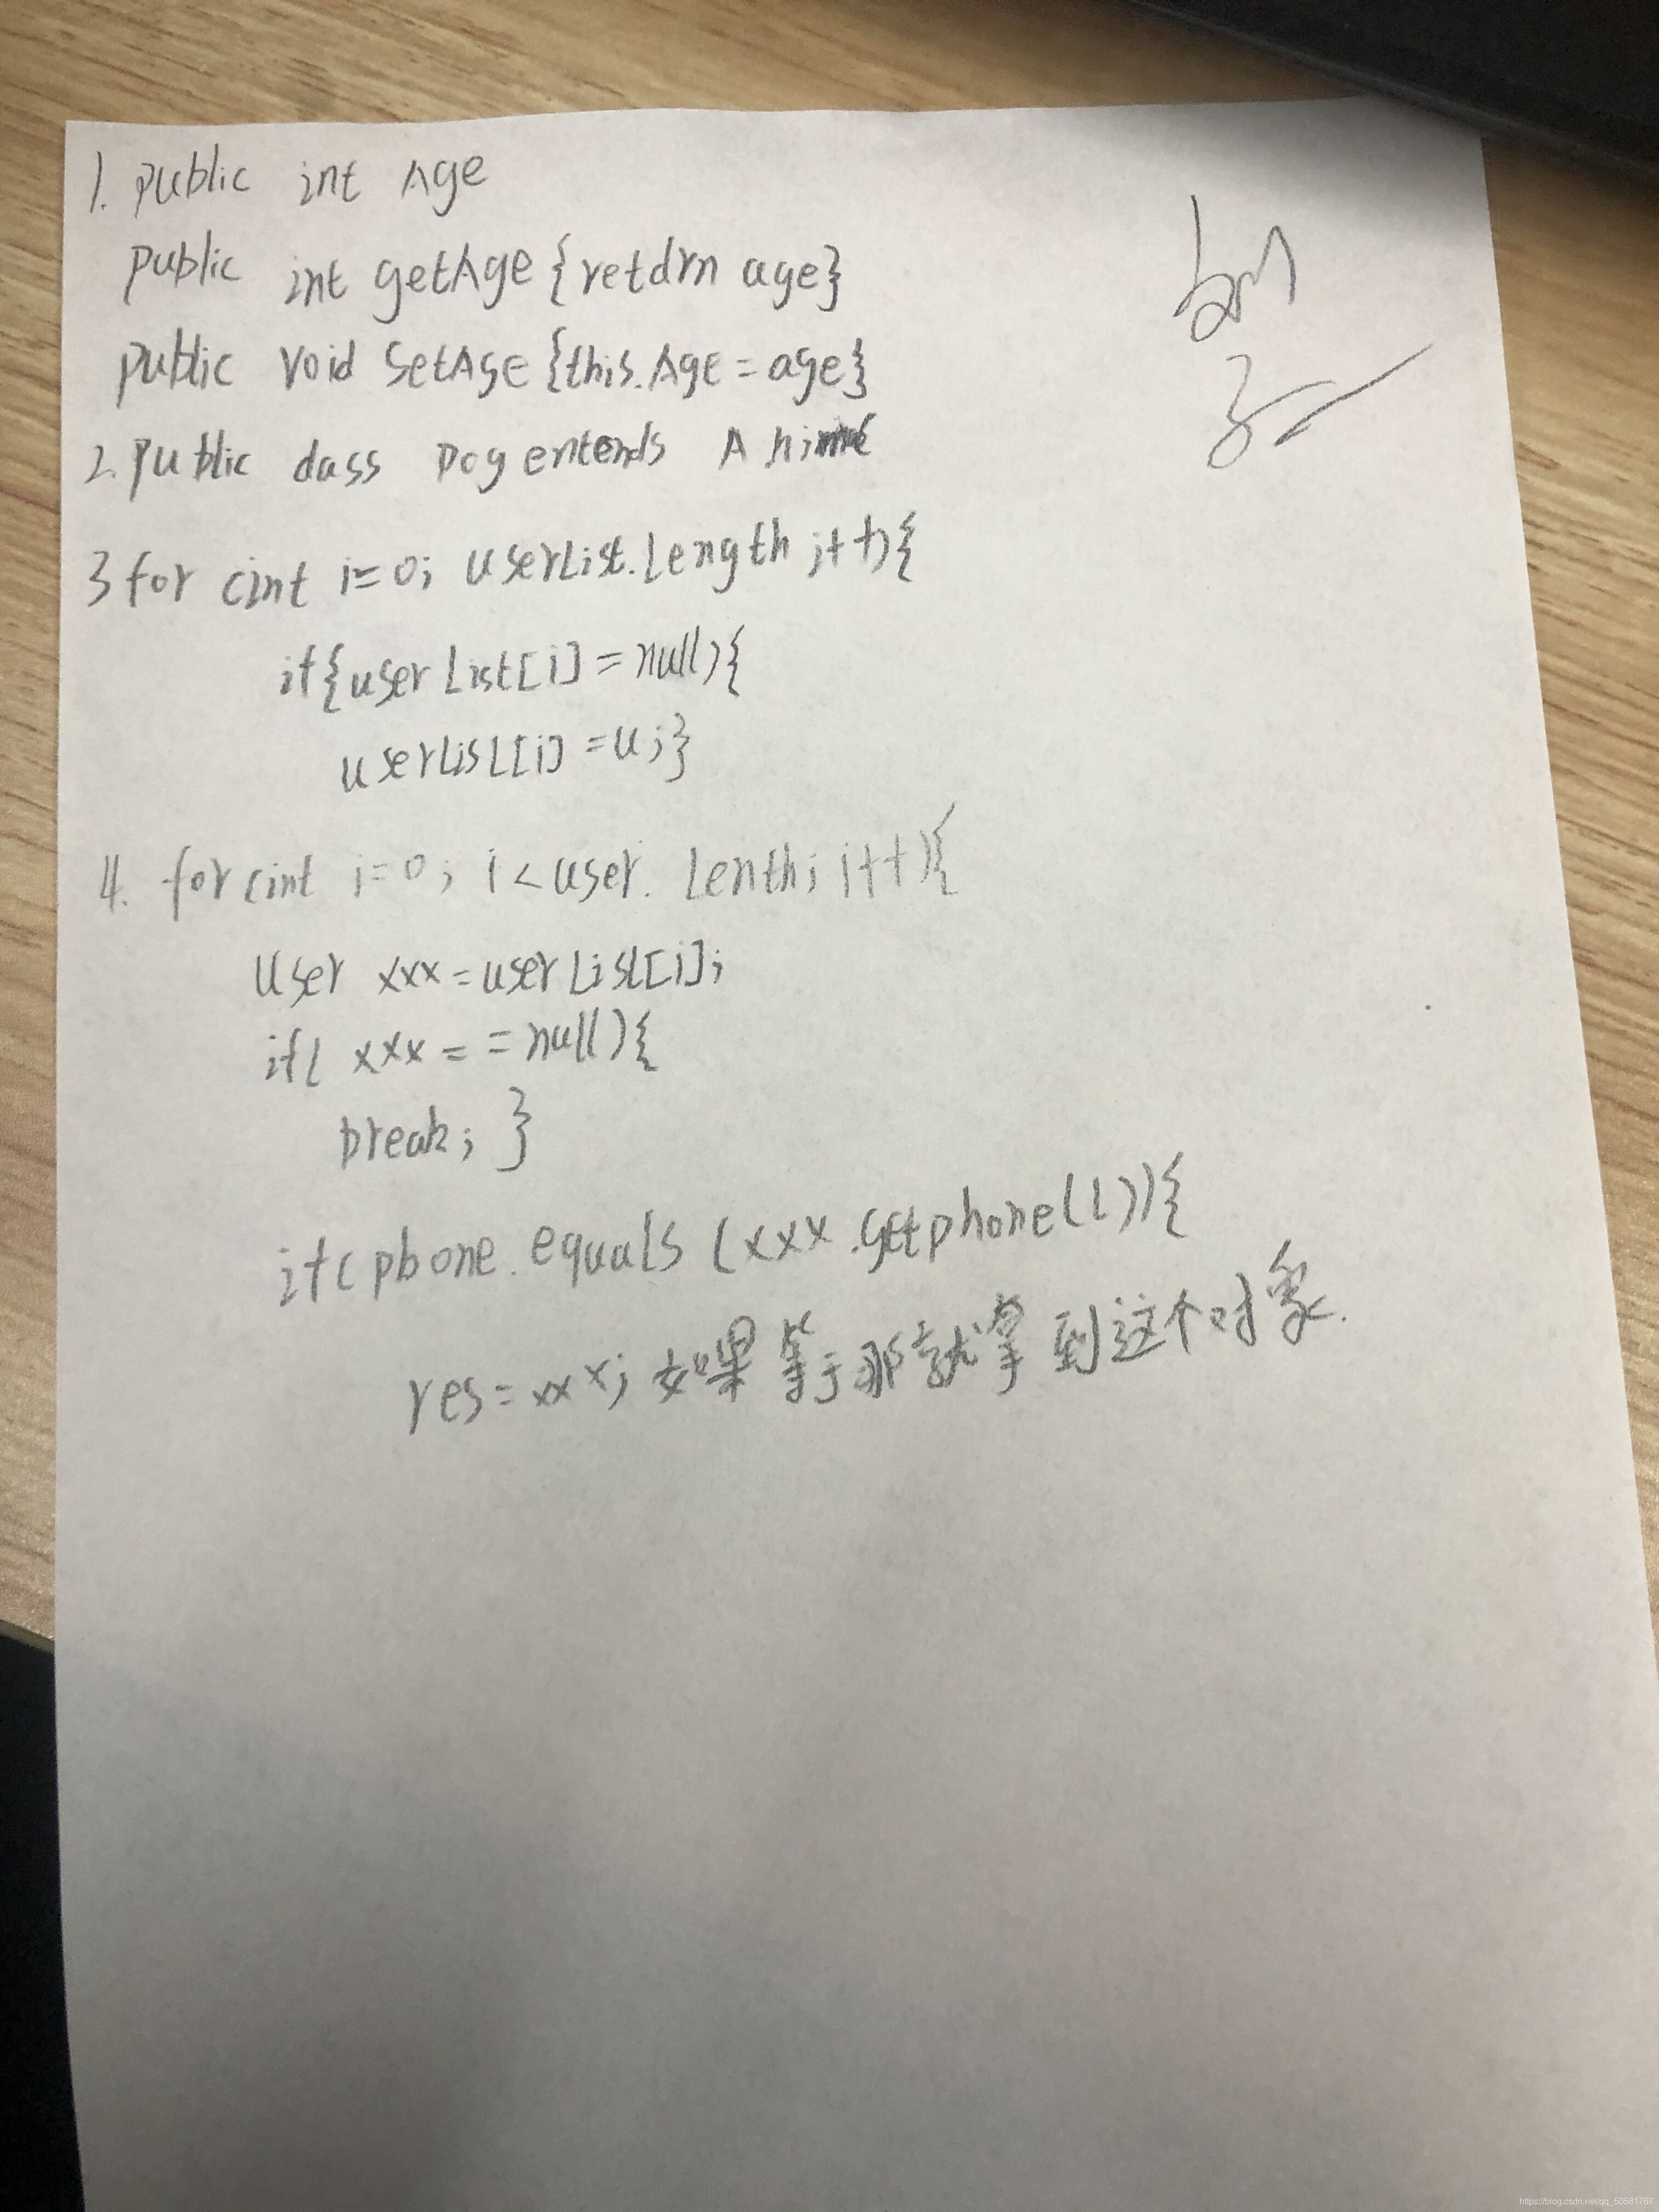 1. public int Age
public int getAge {retdrn age}
public void SetAge {this.Age = age}
2. public dass Dog entends
3 for cint i=0; userList.length i++){
if{userList[i] = null){
userList[i] = u;}
4. for cint i=0; i<user. Lenth; i++){
User xxx = userList[i];
if( xxx = = null){
break; }
if( pbone. equals (xxx .getphone(()){
res = xxx; 如果等于那就拿到这个对象.
https://blog.csdn.net/qq_50581767